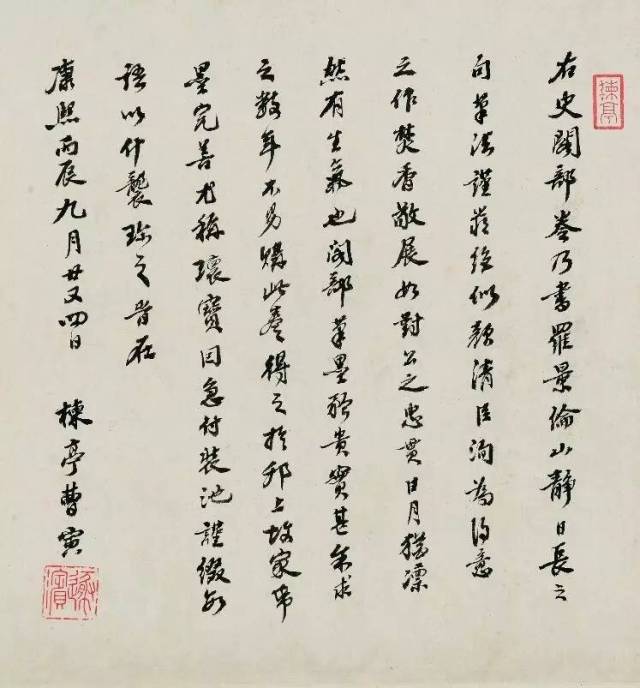 楝亭
右史閣部卷乃書羅景倫山靜日長之
句筆法謹嚴絶似顔清臣洵為得意
之作焚香敬展如對公之忠貫日月猶凜
然有生氣也閣部筆墨矜貴寶甚余求
之數年不易購此卷得之於邗上故家帋
墨完善尤稱瓌寶因急付裝池謹綴數
語以什襲珍之旹在
康熙丙辰九月廿又四日 楝亭曹寅